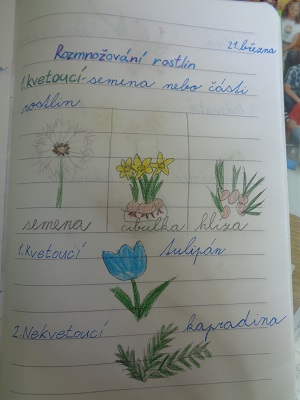 21. března
Rozmnožování rostlin
1. kvetoucí - semena nebo části
rostlin
semena cibulka hlíza
1. Kvetoucí tulipán
2. Nekvetoucí kapradina